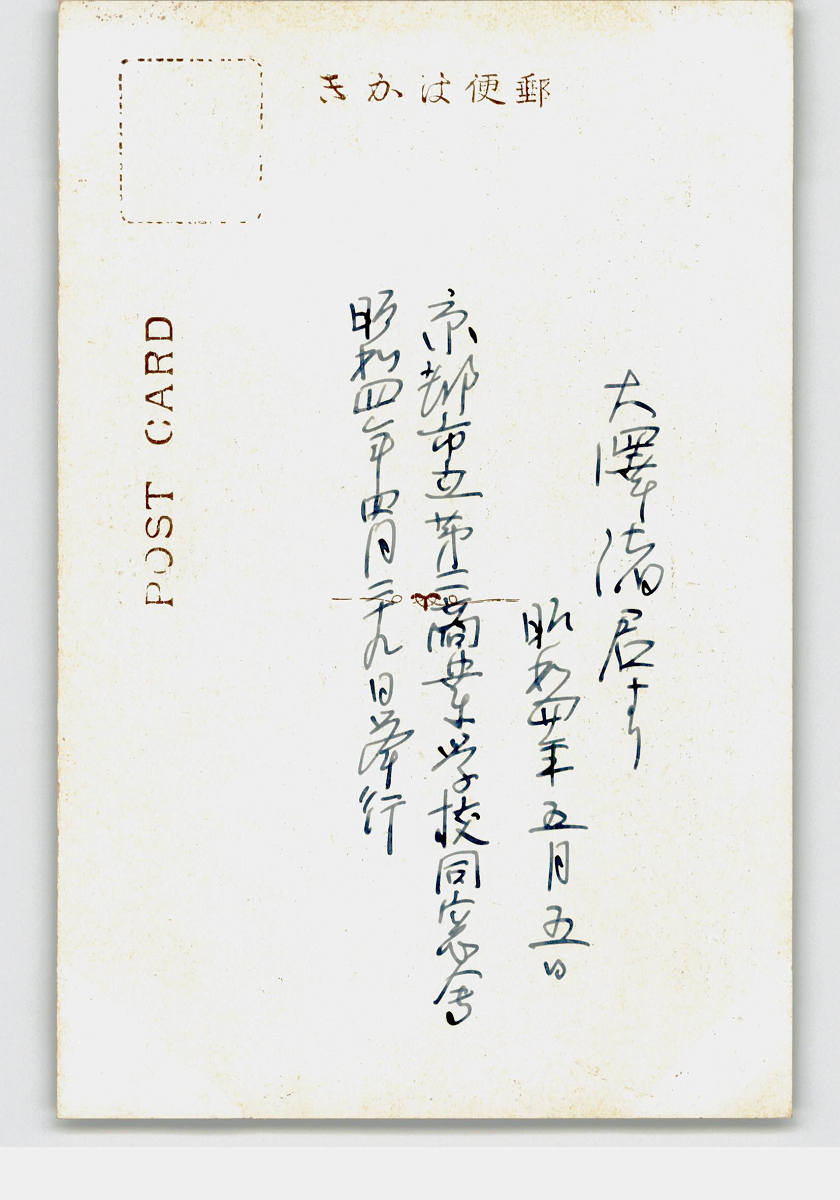 郵便はかき
大澤渚君より
昭和四年五月五日
京都市立第二商業学校同窓会
昭和四年四月二十九日挙行
POST CARD